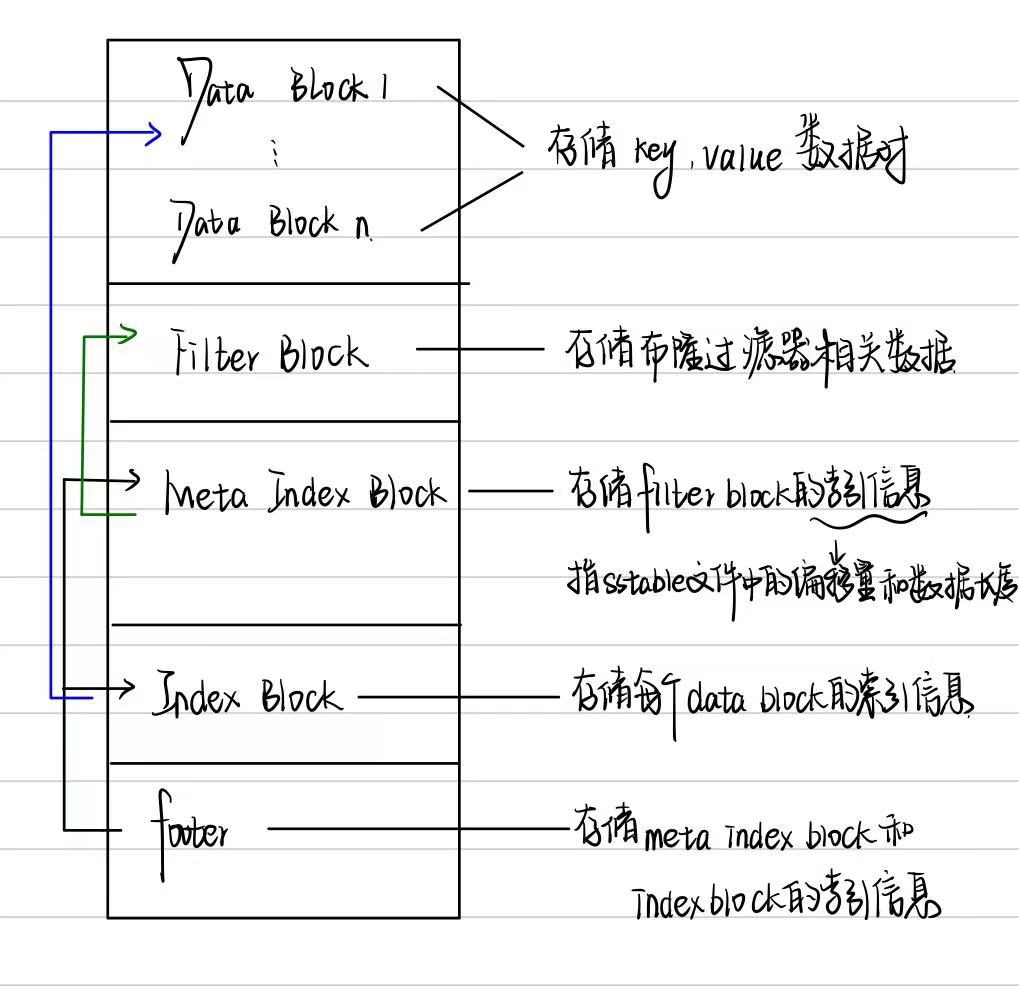 Data Block 1
存储 key, value 数据对
⋮
Data Block n
Filter Block
存储布隆过滤器相关数据
Meta Index Block
存储filter block的索引信息
指sstable文件中的偏移量和数据长度
Index Block
存储每个data block的索引信息
footer
存储meta index block和
index block的索引信息